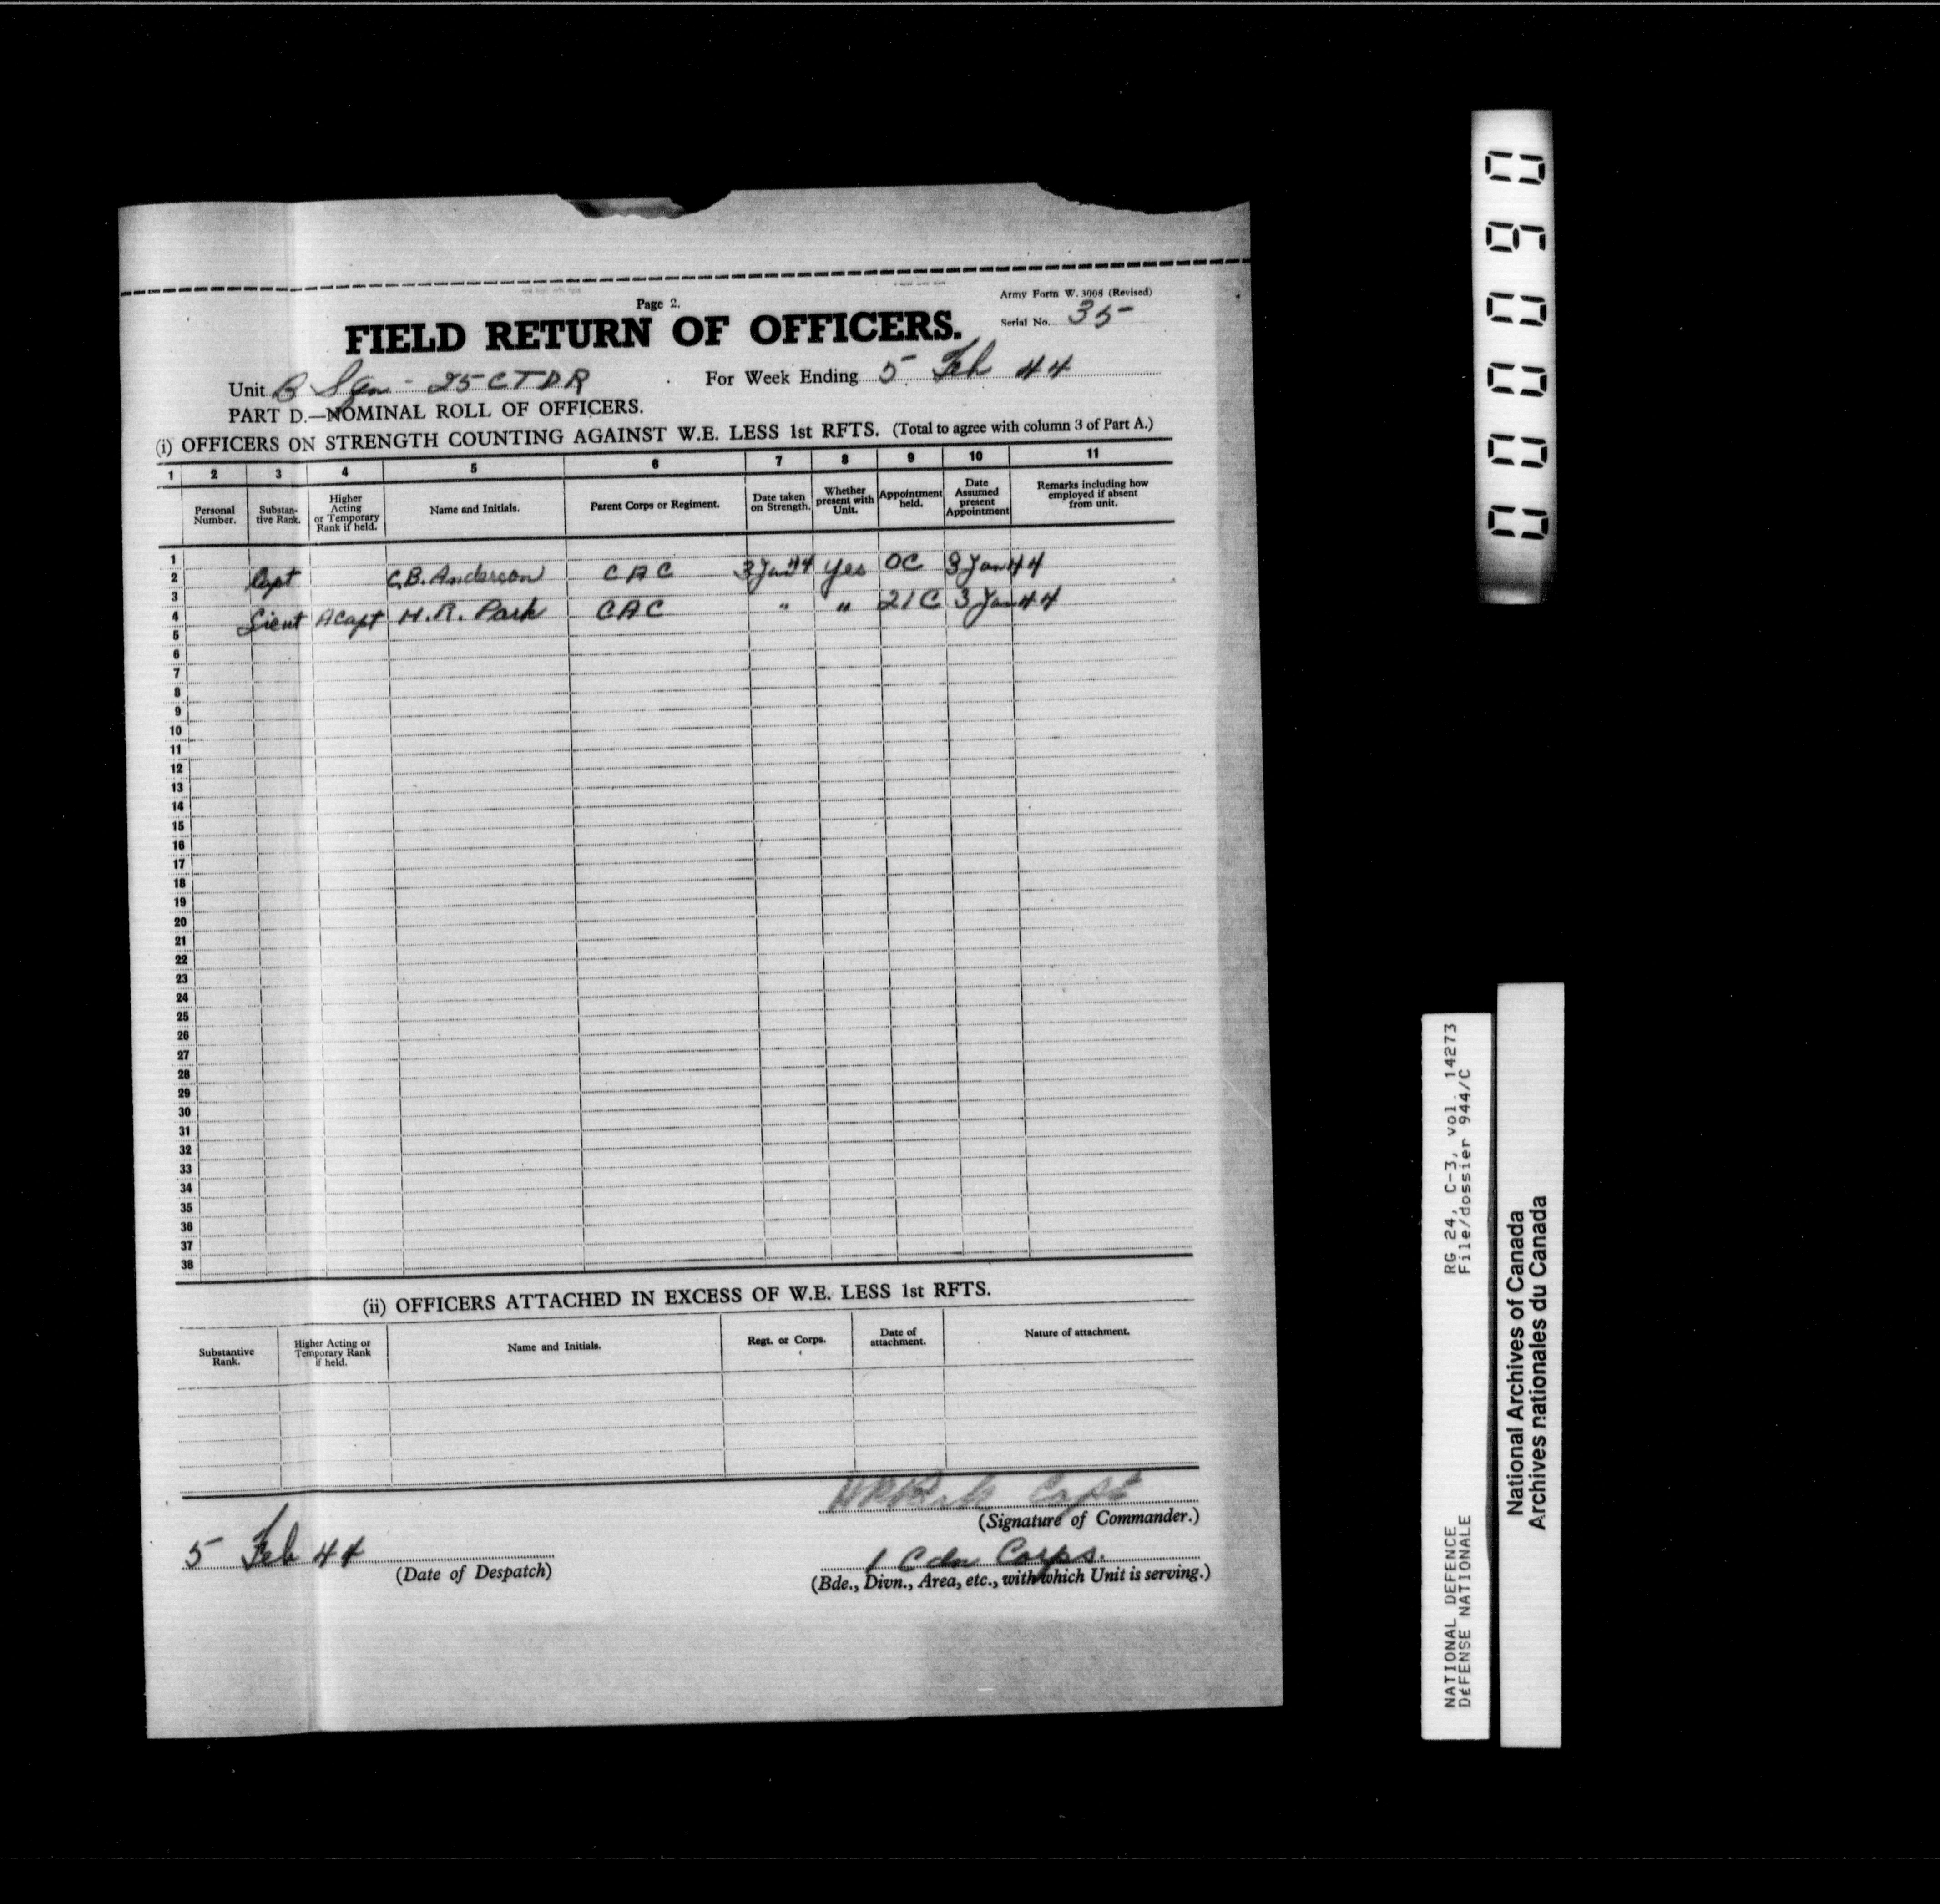 Page 2.
Army Form W. 3008 (Revised)
FIELD RETURN OF OFFICERS.
Serial No. 35
Unit B Sqn - 25 CTDR
For Week Ending 5 Feb 44
PART D.—NOMINAL ROLL OF OFFICERS.
(i) OFFICERS ON STRENGTH COUNTING AGAINST W.E. LESS 1st RFTS. (Total to agree with column 3 of Part A.)
1 2 3 4 5 6 7 8 9 10 11
Personal Number. Substan-tive Rank. Higher Acting or Temporary Rank if held. Name and Initials. Parent Corps or Regiment. Date taken on Strength. Whether present with Unit. Appointment held. Date Assumed present Appointment Remarks including how employed if absent from unit.
1
2 Capt C.B. Anderson CAC 3 Jan 44 Yes OC 3 Jan 44
3
4 Lieut A Capt H.R. Park CAC " " 2IC 3 Jan 44
5
6
7
8
9
10
11
12
13
14
15
16
17
18
19
20
21
22
23
24
25
26
27
28
29
30
31
32
33
34
35
36
37
38
(ii) OFFICERS ATTACHED IN EXCESS OF W.E. LESS 1st RFTS.
Substantive Rank. Higher Acting or Temporary Rank if held. Name and Initials. Regt. or Corps. Date of attachment. Nature of attachment.
HR Park Capt
(Signature of Commander.)
5 Feb 44
(Date of Despatch)
1 Cdn Corps.
(Bde., Divn., Area, etc., with which Unit is serving.)
RG 24, C-3, vol. 14273
File/dossier 944/C
NATIONAL DEFENCE
DÉFENSE NATIONALE
National Archives of Canada
Archives nationales du Canada